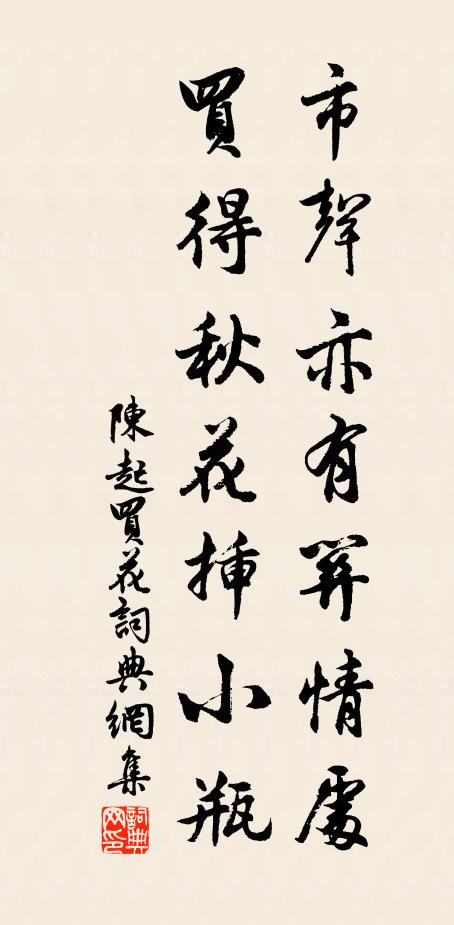 市聲亦有關情處
買得秋花插小瓶
陳起買花詞典網集
詞典网印